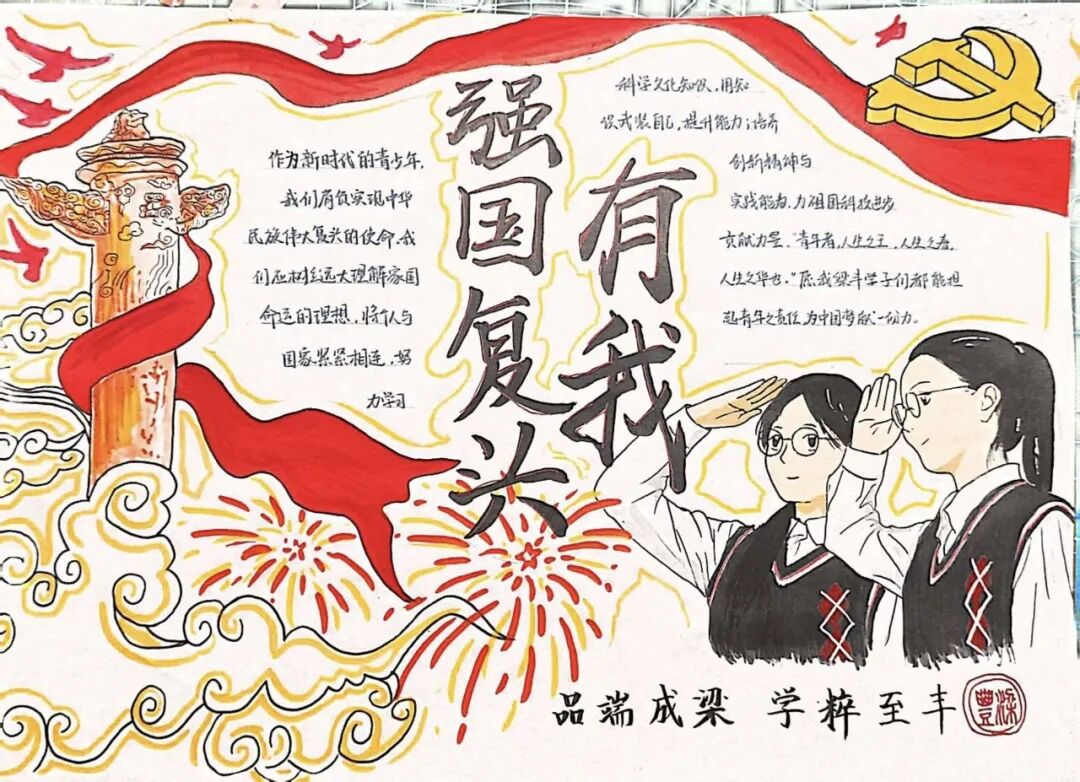 强国复兴
有我
作为新时代的青少年,
我们肩负实现中华
民族伟大复兴的使命,我
们应树立远大理解家国
命运的理想,将个人与
国家紧紧相连,努
力学习
科学文化知识,用知
识武装自己,提升能力;培养
创新精神与
实践能力,为祖国科技进步
贡献力量,"青年者,人生之王,人生之春,
人生之华也,"愿我梁丰学子们都能担
起青年之责任,为中国梦献一份力。
品端成梁 学粹至丰
梁豐